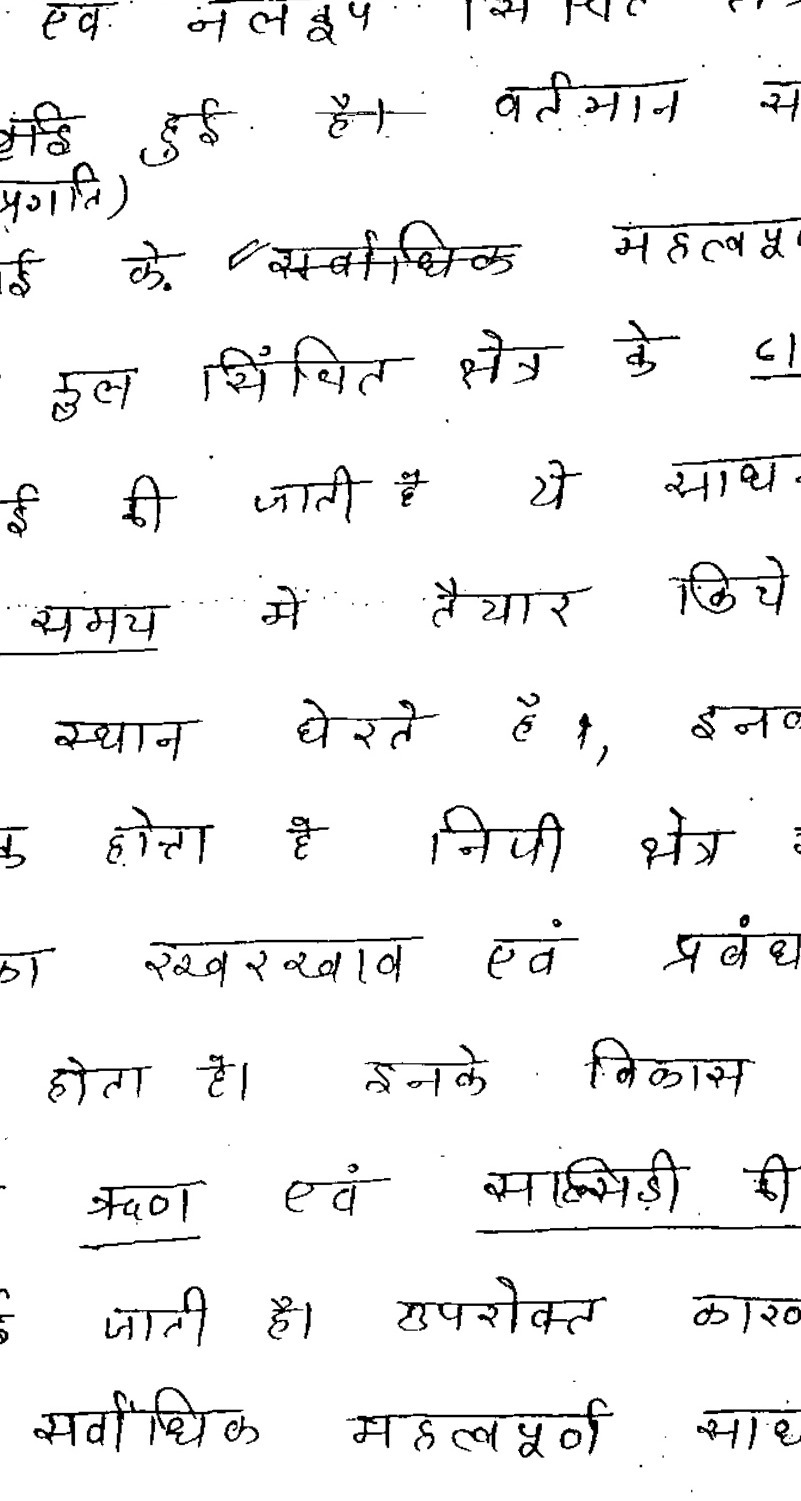 एवं नलकूप सिंचित
हुई है। वर्तमान स
प्रगति)
ई के सर्वाधिक महत्वपू
कुल सिंचित क्षेत्र के 61
ई की जाती है ये साध
समय में तैयार किये
स्थान घेरते है।, इनक
होता है निजी क्षेत्र
का रखरखाव एवं प्रबंध
होता है। इनके विकास
ऋण एवं सब्सिडी की
ई जाती है। उपरोक्त कारण
सर्वाधिक महत्वपूर्ण साध